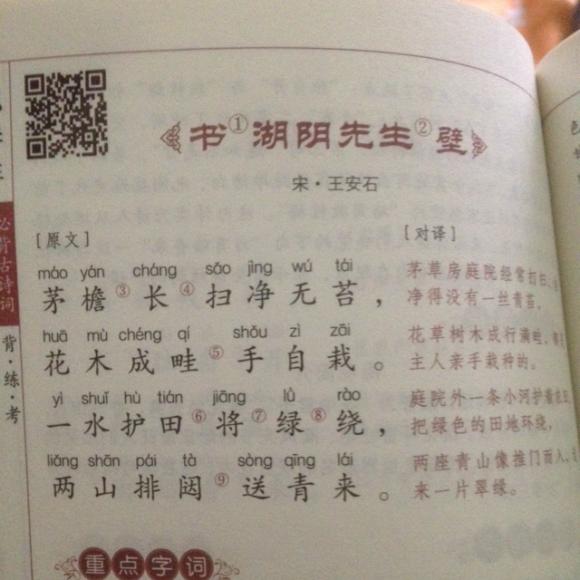 书①湖阴先生②壁
宋·王安石
[原文]
[对译]
máo yán cháng sǎo jìng wú tái
茅檐③长④扫净无苔，
茅草房庭院经常打扫，
净得没有一丝青苔。
huā mù chéng qí shǒu zì zāi
花木成畦⑤手自栽。
花草树木成行满畦，
主人亲手栽种的。
yì shuǐ hù tián jiāng lǜ rào
一水护田⑥将⑦绿⑧绕，
庭院外一条小河护着
把绿色的田地环绕，
liǎng shān pái tà sòng qīng lái
两山排闼⑨送青来。
两座青山像推门而入，
来一片翠绿。
重点字词
必背古诗词
背·练·考